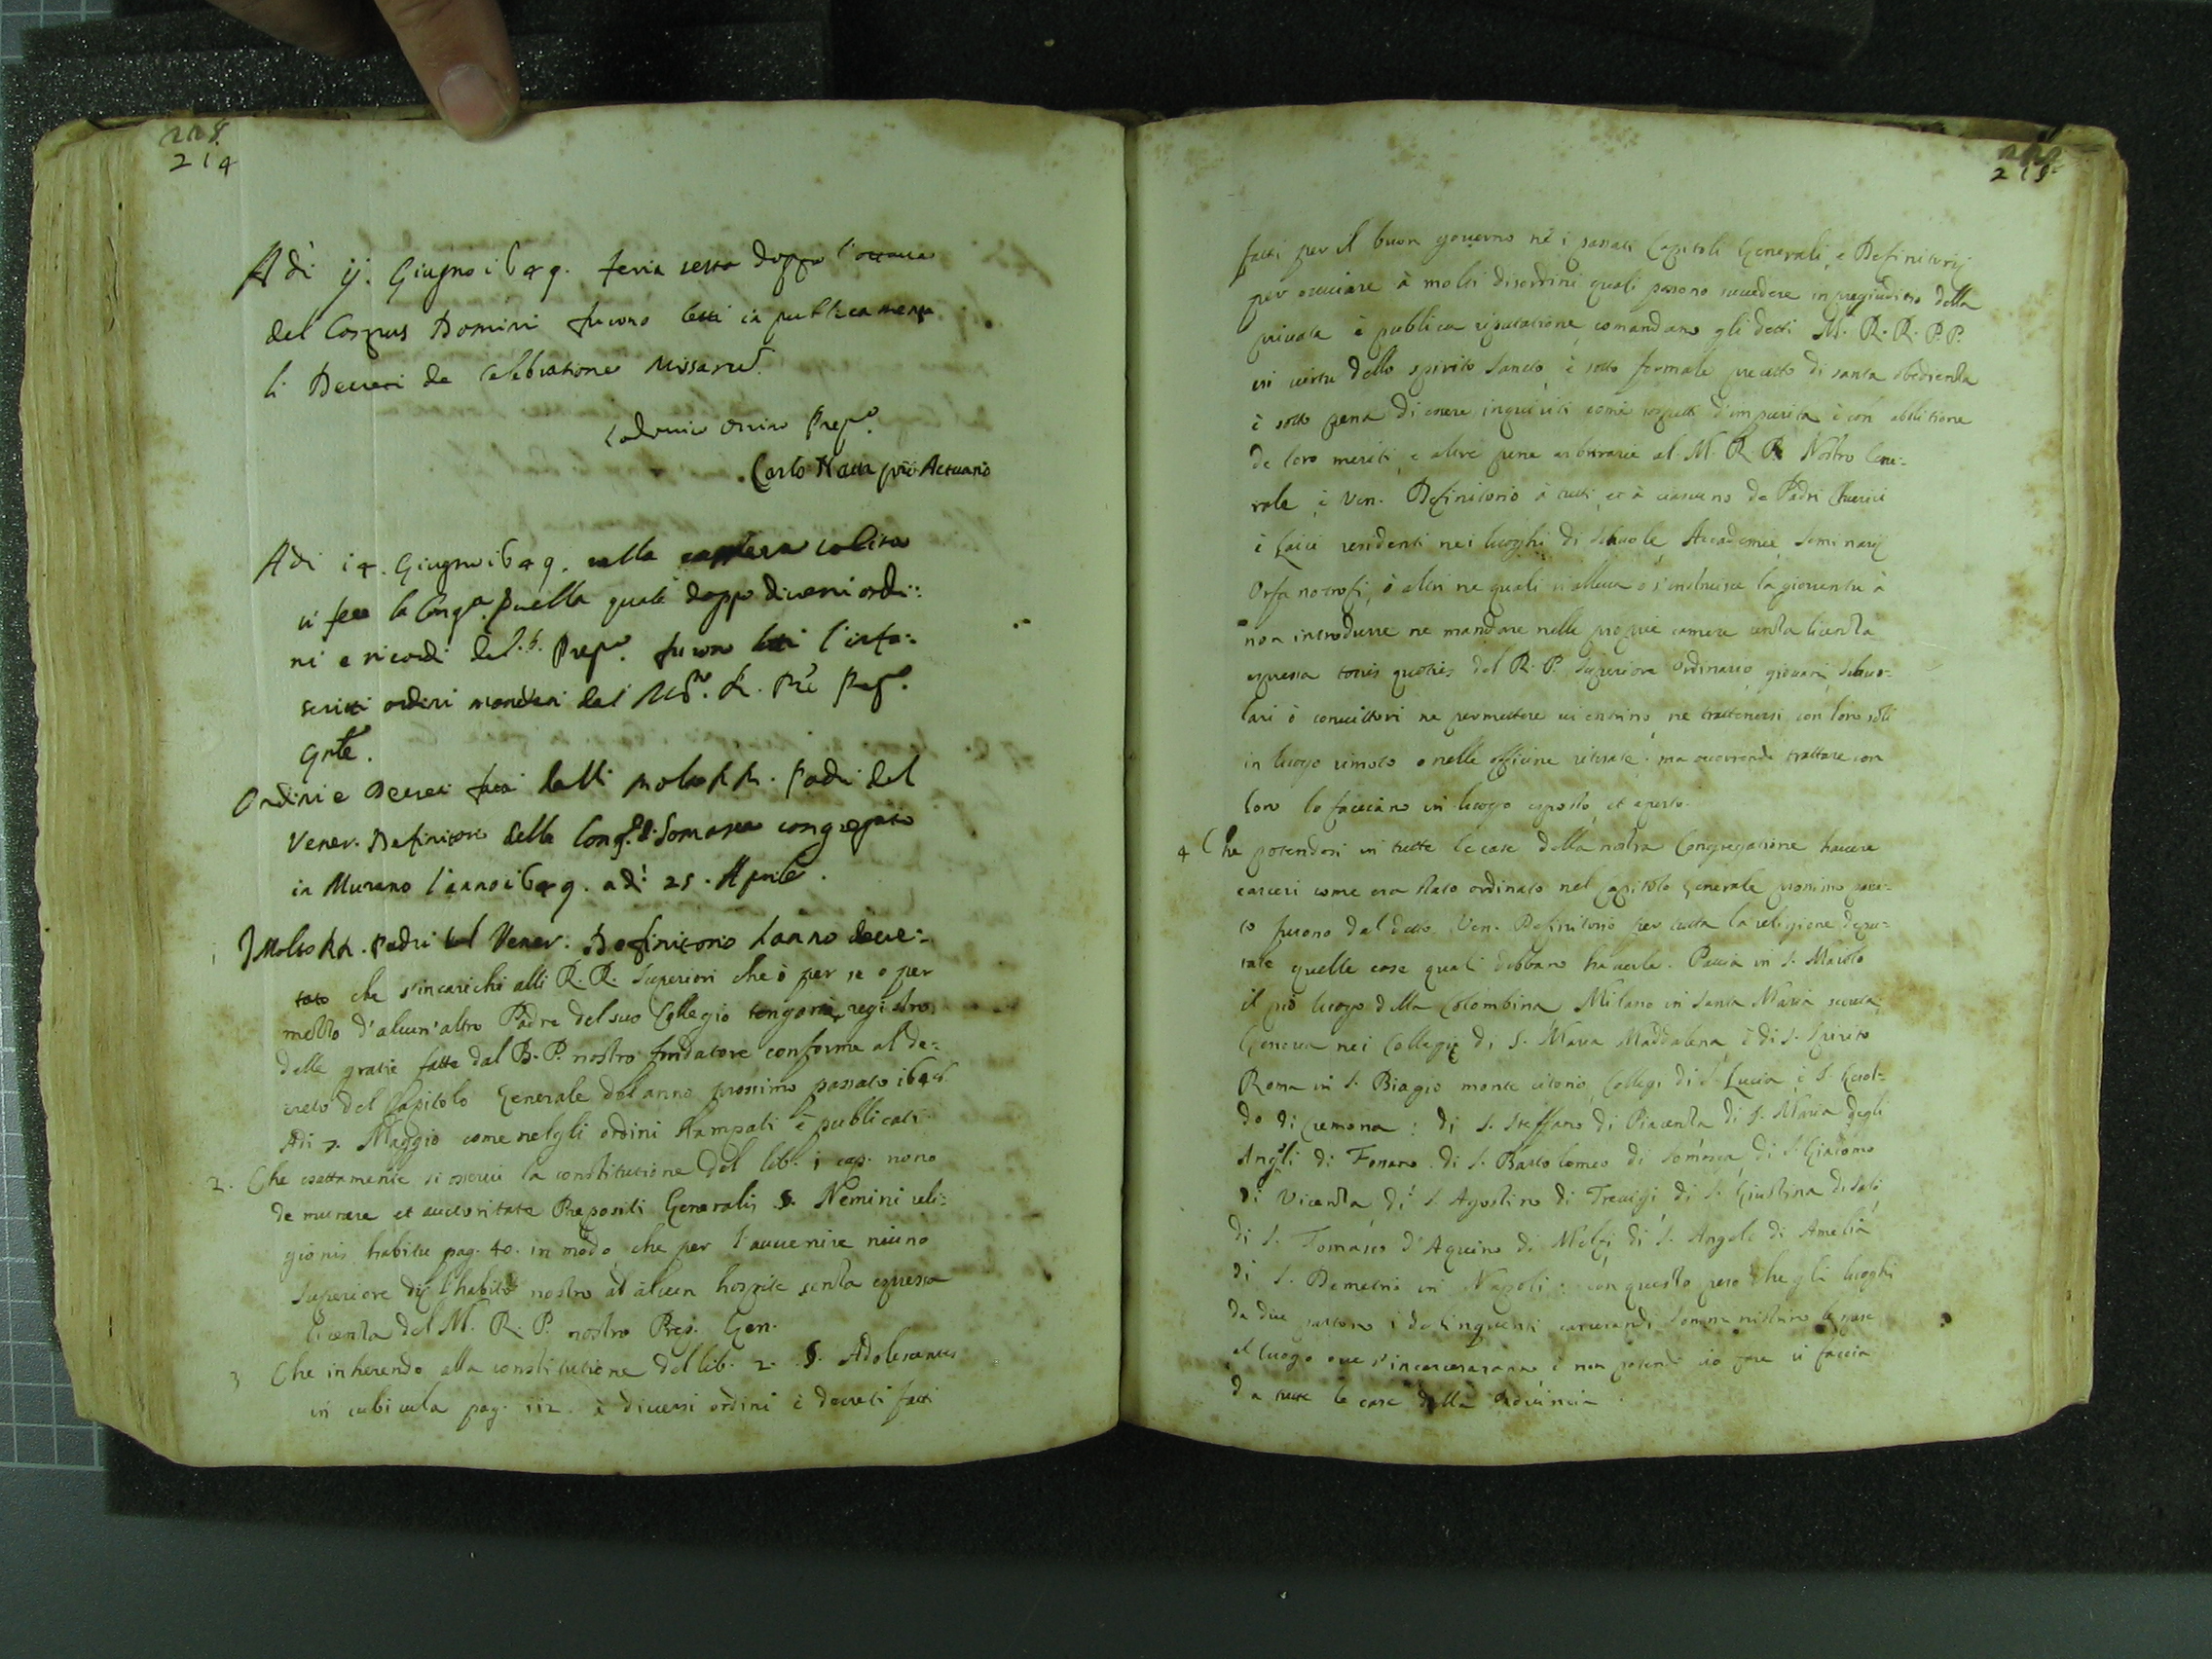 214
Adi ij. Giugno i649. feria sesta doppo l'ottaua
del Corpus Domini furono letti in publica mensa
li Decreti de Celebratione Missarũ.
Prepto.
Carlo Natta prõ Actuario
Adi i4. Giugno i649. nella camera solita
si fece la Congne. nella quale doppo diuersi ordi:
ni e ricordi del P. Prepto. furono letti l'infa:
scritti ordini mandati dal M.to R. Prẽ Prepto.
Gnle.
Ordini e Decreti fatti dalli molto RR. Padri del
Vener. Definitorio della Congne. di Somasca congregato
in Murano l'anno i649. adi 25. Aprile.
i I Molto RR. Padri del Vener. Definitorio hanno decre:
tato che s'incarichi alli R.R. Superiori che ò per se o per
mezzo d'alcun'altro Padre del suo Collegio tengano registro
delle gratie fatte dal B. P. nostro fondatore conforme al de:
creto del Capitolo Generale del anno prossimo passato i648.
Adi 7. Maggio come nelgli ordini stampati è publicati
2. Che esattamente si osserui la constitutione del lib. i cap. nono
de munere et auctoritate Prepositi Generalis §. Nemini reli:
gionis habitu pag. 40. in modo che per l'auuenire niuno
Superiore dij l'habito nostro ad alcun hospite senza espressa
licenza del M. R. P. nostro Prep. Gen.
3 Che inherendo alla constitutione del lib. 2. §. Adolescentes
in cubicula pag. ii2. è diuersi ordini è decreti fatti
215
fatti per il buon gouerno ne i passati Capitoli Generali, e Definitorij
per ouuiare à molti disordini quali possono succedere in pregiuditio della
priuata è publica riputatione, comandano gli detti M. R. R. P.P.
in uirtù dello spirito Santo, è sotto formale precetto di santa obedienza
è sotto pena di essere inquisiti come sospetti d'impurità è con abolitione
de loro meriti, e altre pene arbitrarie al M. R. P. Nostro Gene:
rale, è Ven. Definitorio à tutti, et à ciascuno de Padri Chierici
è Laici residenti nei luoghi di Scuole, Accademie, Seminarij
Orfanotrofi, ò altri ne quali si alleua o s'instruisce la giouentù à
non introdurre ne mandare nelle proprie camere senza licenza
espressa toties quoties del R. P. Superiore Ordinario, giouani, Scuo:
lari ò conuittori ne permettere ui entrino, ne trattenersi con loro soli
in luogo rimoto o nelle officine ritirate. ma occorrendo trattare con
loro lo facciano in luogo esposto, et aperto.
4 Che potendosi in tutte le case della nostra Congregatione hauere
carceri come era stato ordinato nel Capitolo Generale prossimo passa:
to furono dal detto Ven. Definitorio per tutta la religione depu:
tate quelle case quali debbano hauerle. Pauia in S. Maiolo
il pio luogo della Colombina, Milano in Santa Maria secreta,
Genoua nei Collegij di S. Maria Maddalena, è di S. Spirito
Roma in S. Biagio monte citorio, Collegi di S. Lucia, è S. Gerol:
do di Cremona: di S. Steffano di Piacenza di S. Maria degli
Angeli di Fossano. di S. Bartolomeo di Somasca, di S. Giacomo
di Vicenza, di S. Agostino di Treuigi, di S. Giustina di Salò
di S. Tomaso d'Aquino di Melfi, di S. Angelo di Amelia
di S. Demetrio in Napoli: con questo però che gli luoghi
da doue partono i delinquenti carcerandi somministrino le spese
al luogo oue s'incarcerarano è non potendo ciò fare si faccia
da tutte le case della Prouincia